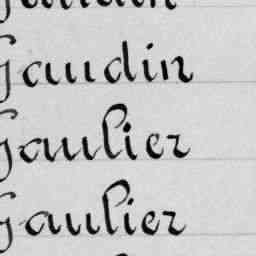 Gaudin
Gaulier
Gaulier